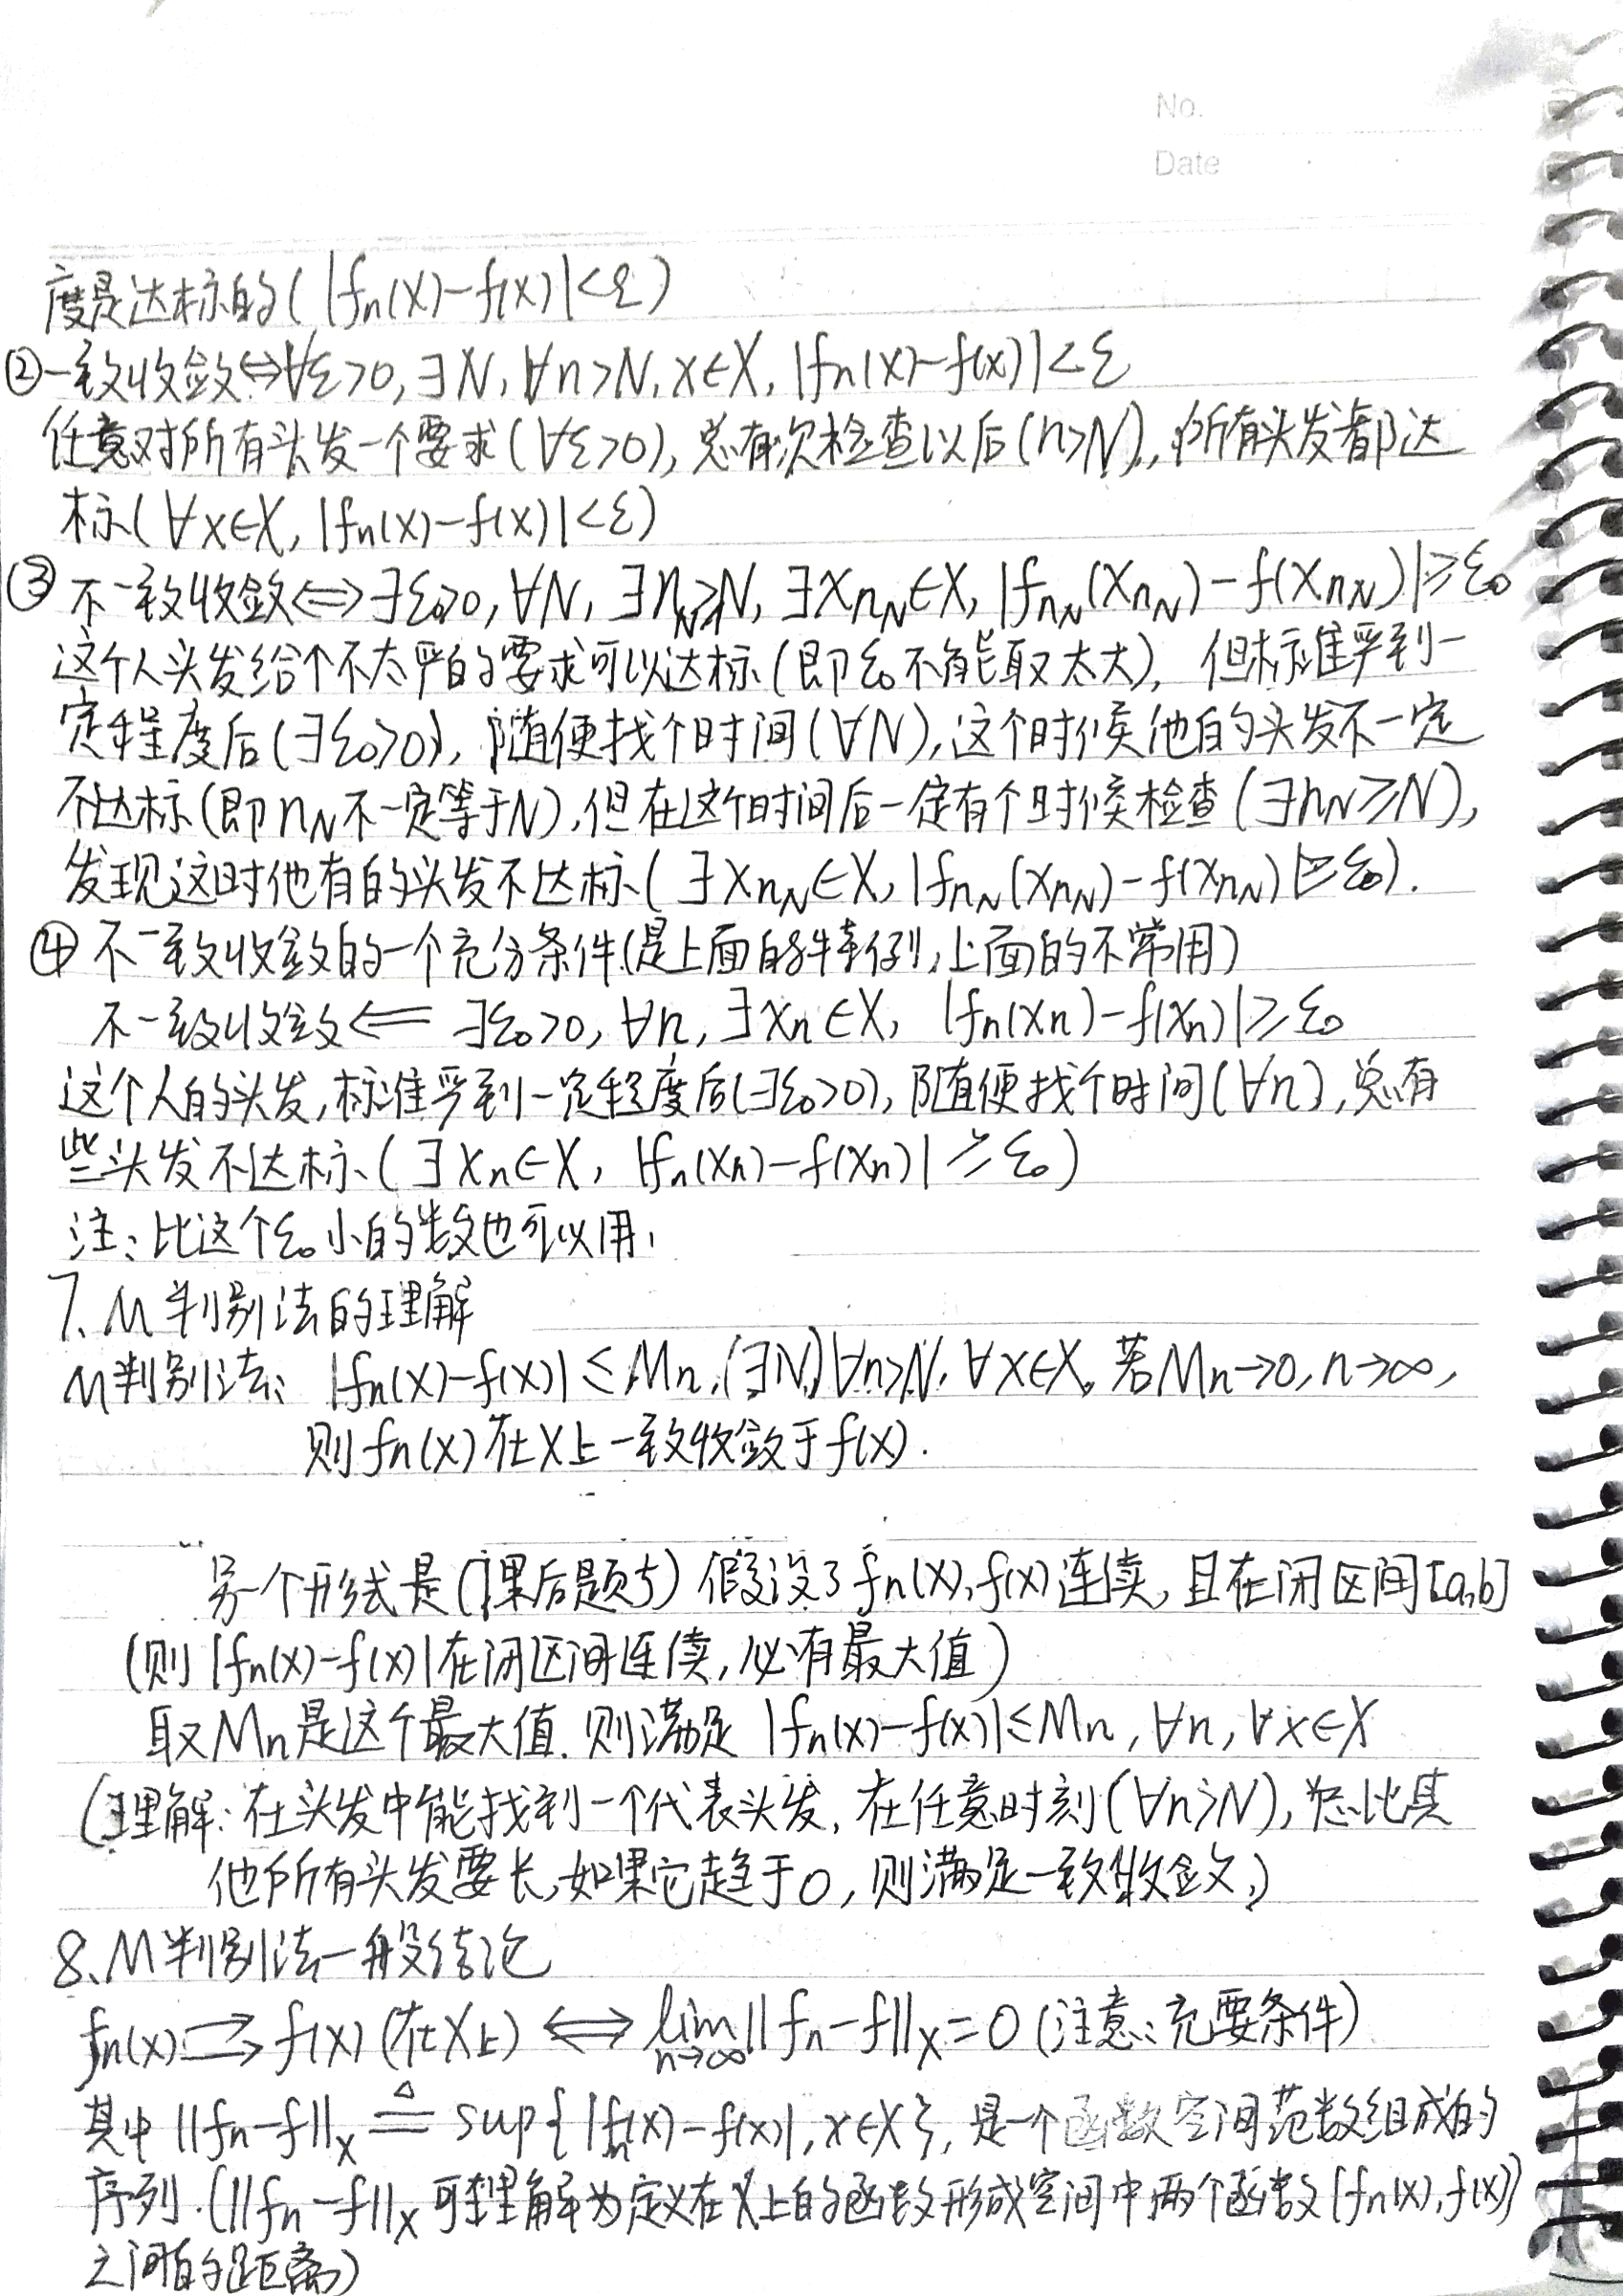 No.
Date
度是达标的(|fn(x)-f(x)|<ε)
②一致收敛⇔∀ε>0,∃N,∀n>N,x∈X,|fn(x)-f(x)|<ε
任意对所有头发一个要求(∀ε>0),总有次检查以后(n>N),所有头发都达
标(∀x∈X,|fn(x)-f(x)|<ε)
③不一致收敛⇔∃ε₀>0,∀N,∃n_N≥N,∃x_{n_N}∈X,|f_{n_N}(x_{n_N})-f(x_{n_N})|≥ε₀
这个人头发给个不太严的要求可以达标(即ε₀不能取太大),但标准严到一
定程度后(∃ε₀>0),随便找个时间(∀N),这个时候他的头发不一定
不达标(即n_N不一定等于N),但在这个时间后一定有个时候检查(∃n_N≥N),
发现这时他有的头发不达标(∃x_{n_N}∈X,|f_{n_N}(x_{n_N})-f(x_{n_N})|≥ε₀).
④不一致收敛的一个充分条件(是上面的特例,上面的不常用)
不一致收敛⇐∃ε₀>0,∀n,∃xn∈X,|fn(xn)-f(xn)|≥ε₀
这个人的头发,标准严到一定程度后(∃ε₀>0),随便找个时间(∀n),总有
些头发不达标(∃xn∈X,|fn(xn)-f(xn)|≥ε₀)
注:比这个ε₀小的数也可以用.
7、M判别法的理解
M判别法:|fn(x)-f(x)|≤Mn,(∃N)∀n>N,∀x∈X,若Mn→0,n→∞,
则fn(x)在X上一致收敛于f(x).
另一个形式是(课后题5)假设了fn(x),f(x)连续,且在闭区间[a,b]
(则|fn(x)-f(x)|在闭区间连续,必有最大值)
取Mn是这个最大值.则满足|fn(x)-f(x)|≤Mn,∀n,∀x∈X
(理解:在头发中能找到一个代表头发,在任意时刻(∀n>N),总比其
他所有头发要长,如果它趋于0,则满足一致收敛.)
8、M判别法一般结论
fn(x)⇉f(x)(在X上)⇔lim_{n→∞}||fn-f||_X=0(注意:充要条件)
其中||fn-f||_X≜sup{|fn(x)-f(x)|,x∈X},是一个函数空间范数组成的
序列.(||fn-f||_X可理解为定义在X上的函数形成空间中两个函数(fn(x),f(x))
之间的距离)